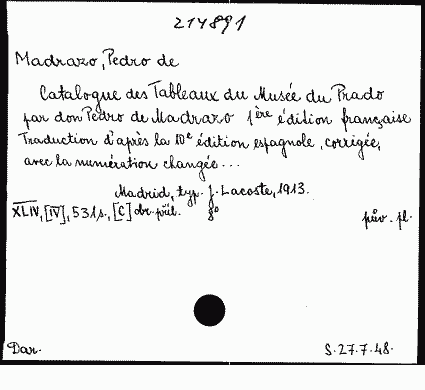 214891
Madrazo, Pedro de
Catalogue des Tableaux du Musée du Prado
par don Pedro de Madrazo 1ère édition française
Traduction d'après la 10e édition espagnole, corrigée,
avec la numération changée...
Madrid, typ. J. Lacoste, 1913.
XLIV, [IV], 531 s., [C] obr. příl. 8° pův. pl.
Dar. S. 27.7.48.